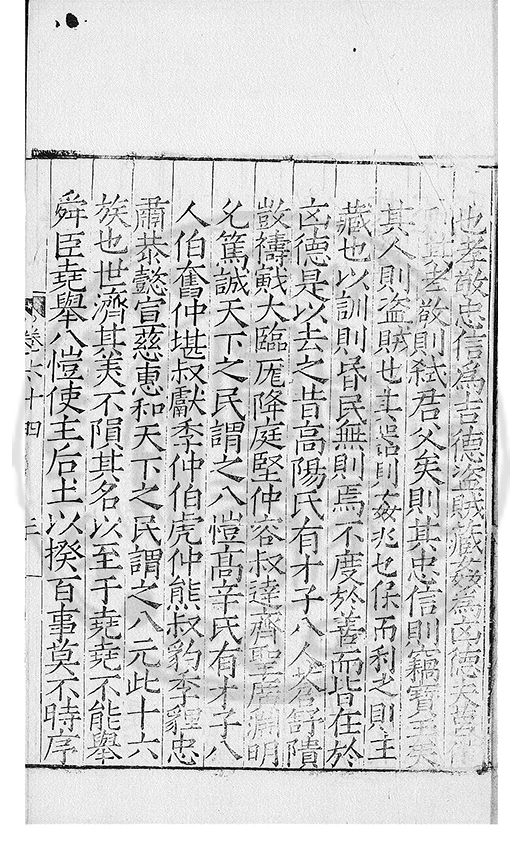 也孝敬忠信為吉德盜賊藏姦為凶德夫莒僕
則其孝敬則弒君父矣則其忠信則竊寶玉矣
其人則盜賊也其器則姦兆也保而利之則主
藏也以訓則昏民無則焉不度於善而皆在於
凶德是以去之昔高陽氏有才子八人蒼舒隤
敱檮戭大臨厖降庭堅仲容叔達齊聖廣淵明
允篤誠天下之民謂之八愷高辛氏有才子八
人伯奮仲堪叔獻季仲伯虎仲熊叔豹季貍忠
肅恭懿宣慈惠和天下之民謂之八元此十六
族也世濟其美不隕其名以至于堯堯不能舉
舜臣堯舉八愷使主后土以揆百事莫不時序
卷六十四
三